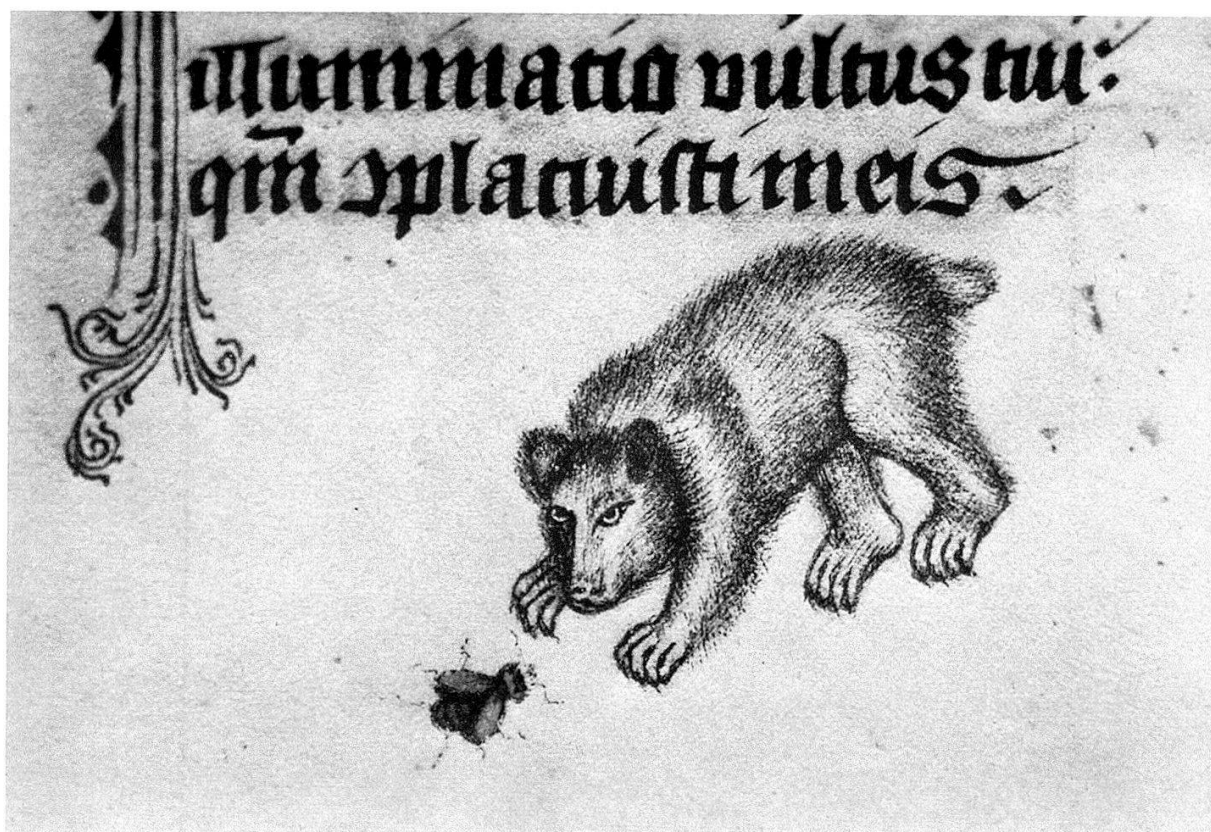 illuminatio vultus tui:
qm̄ ꝯplacuisti in eis.